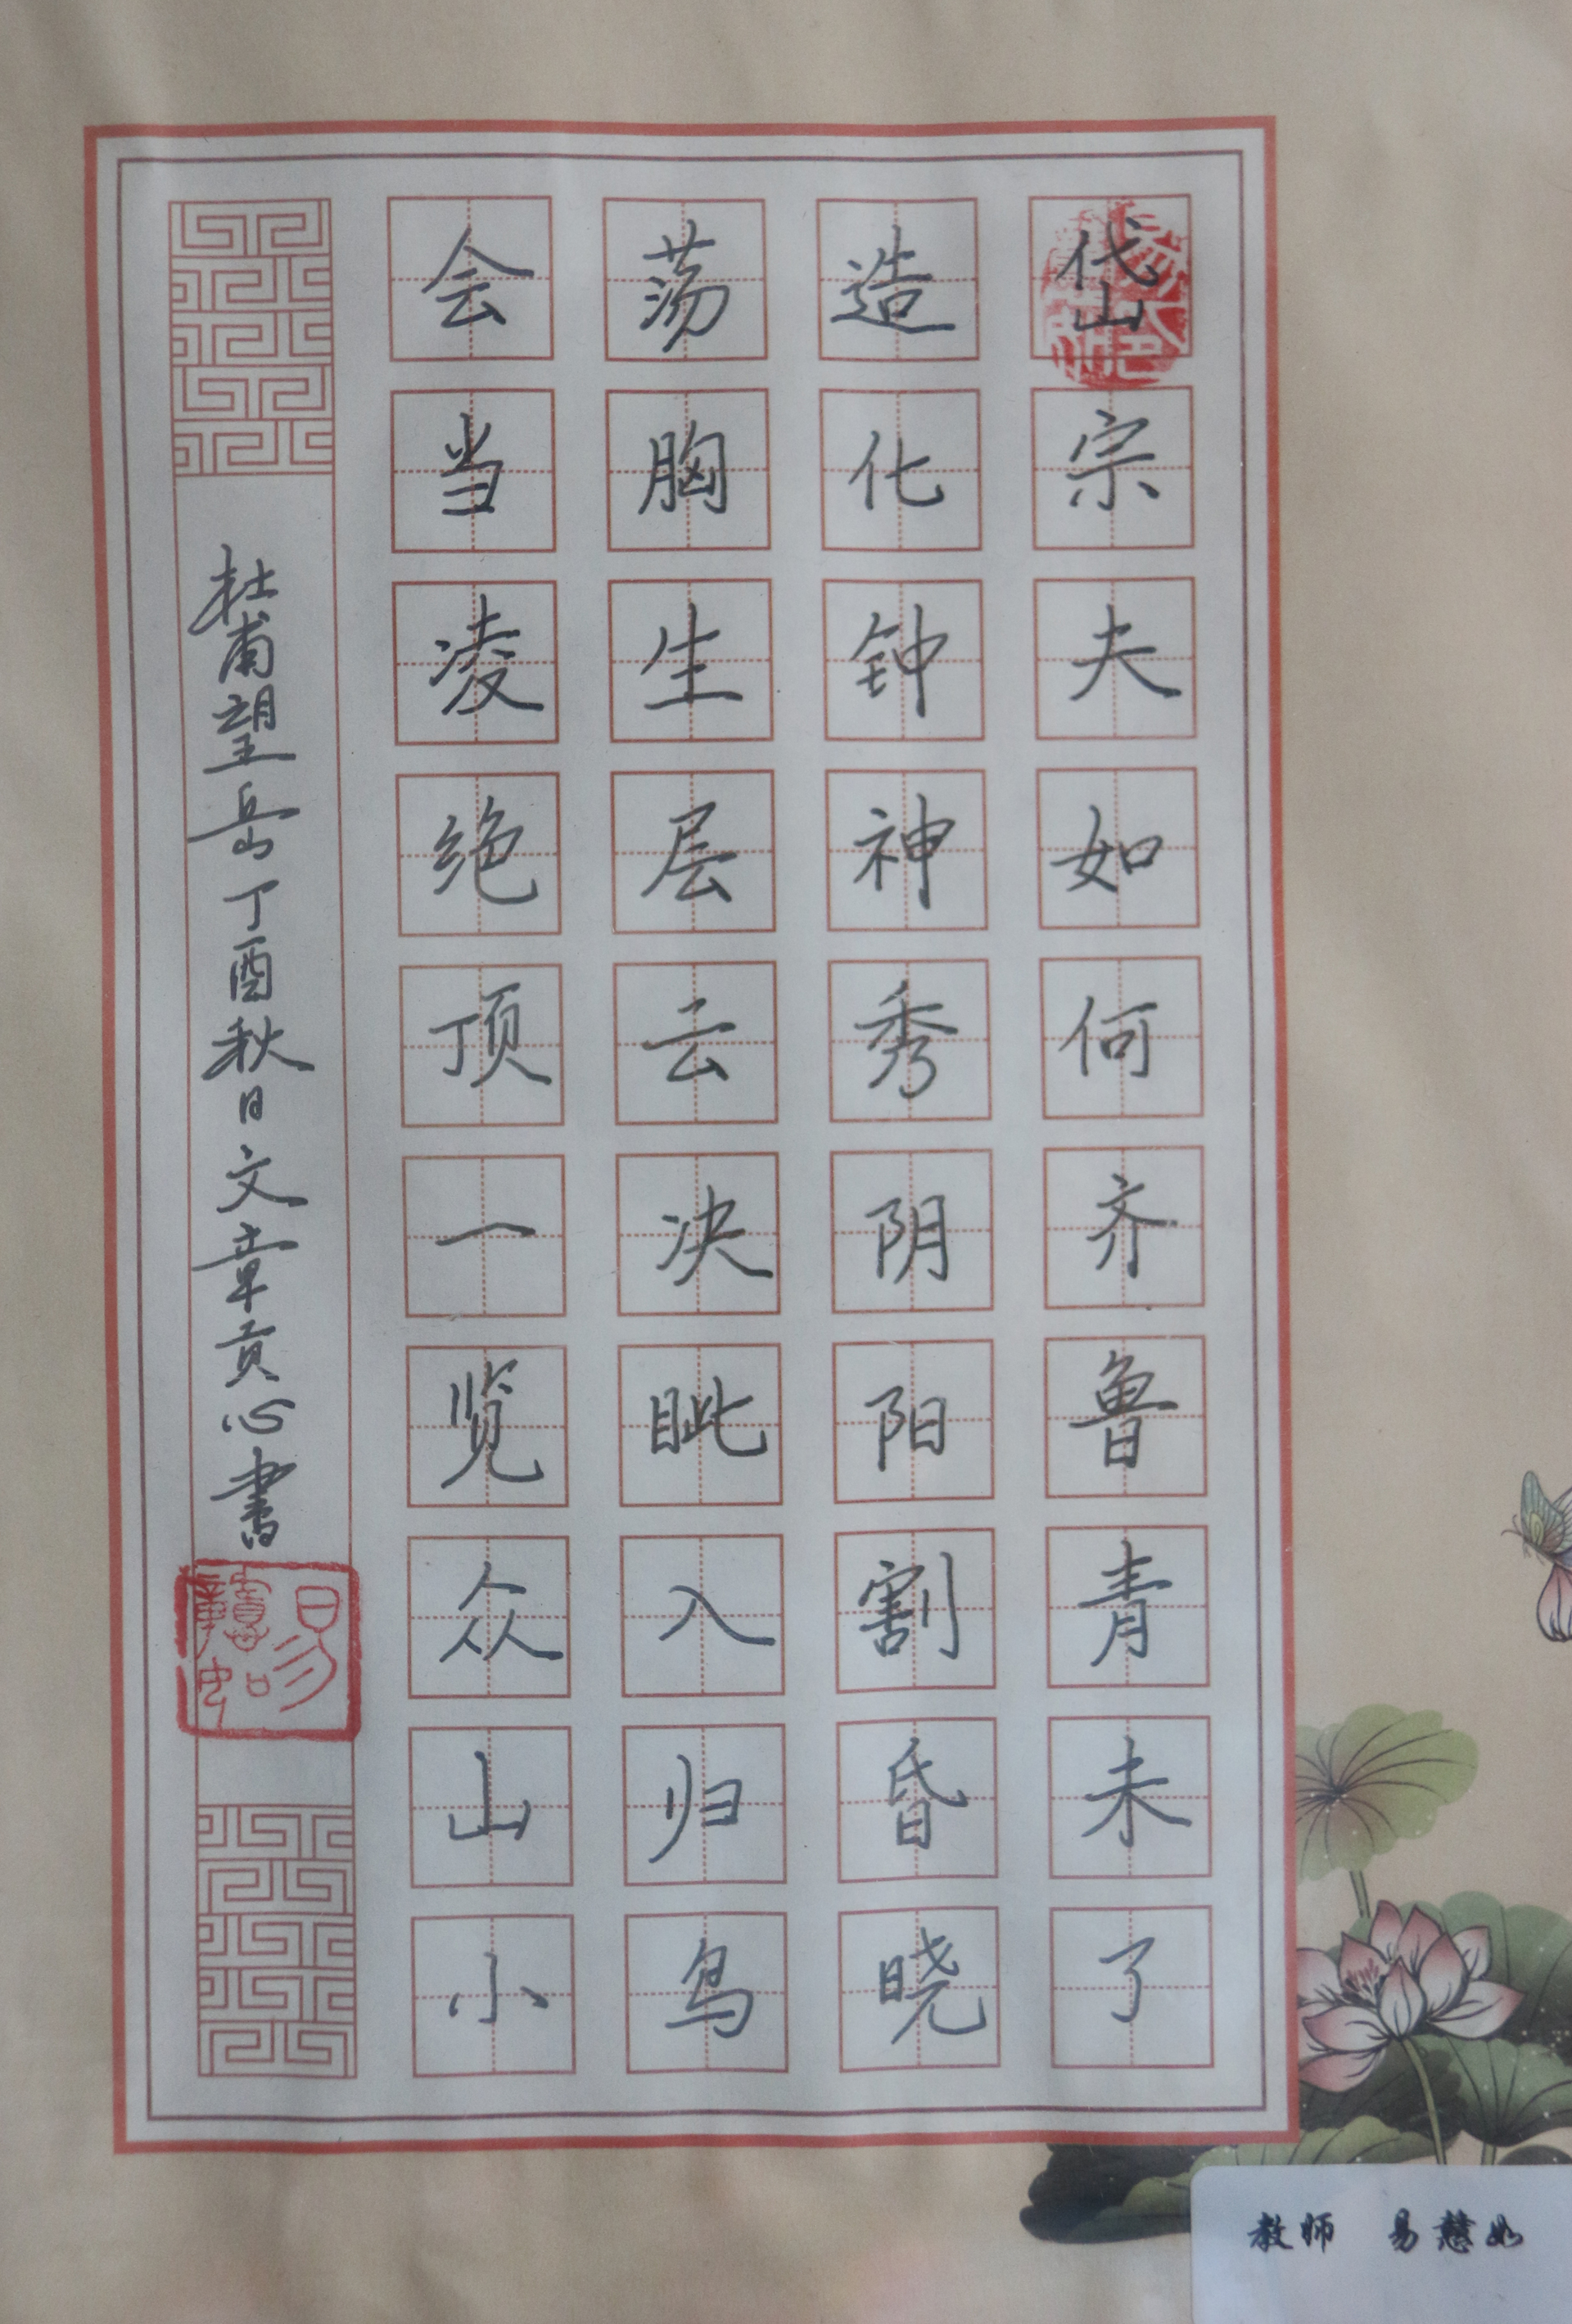 岱宗夫如何齐鲁青未了
造化钟神秀阴阳割昏晓
荡胸生层云决眦入归鸟
会当凌绝顶一览众山小
杜甫望岳丁酉秋日文章贡心書
易慧如印
教师 易慧如